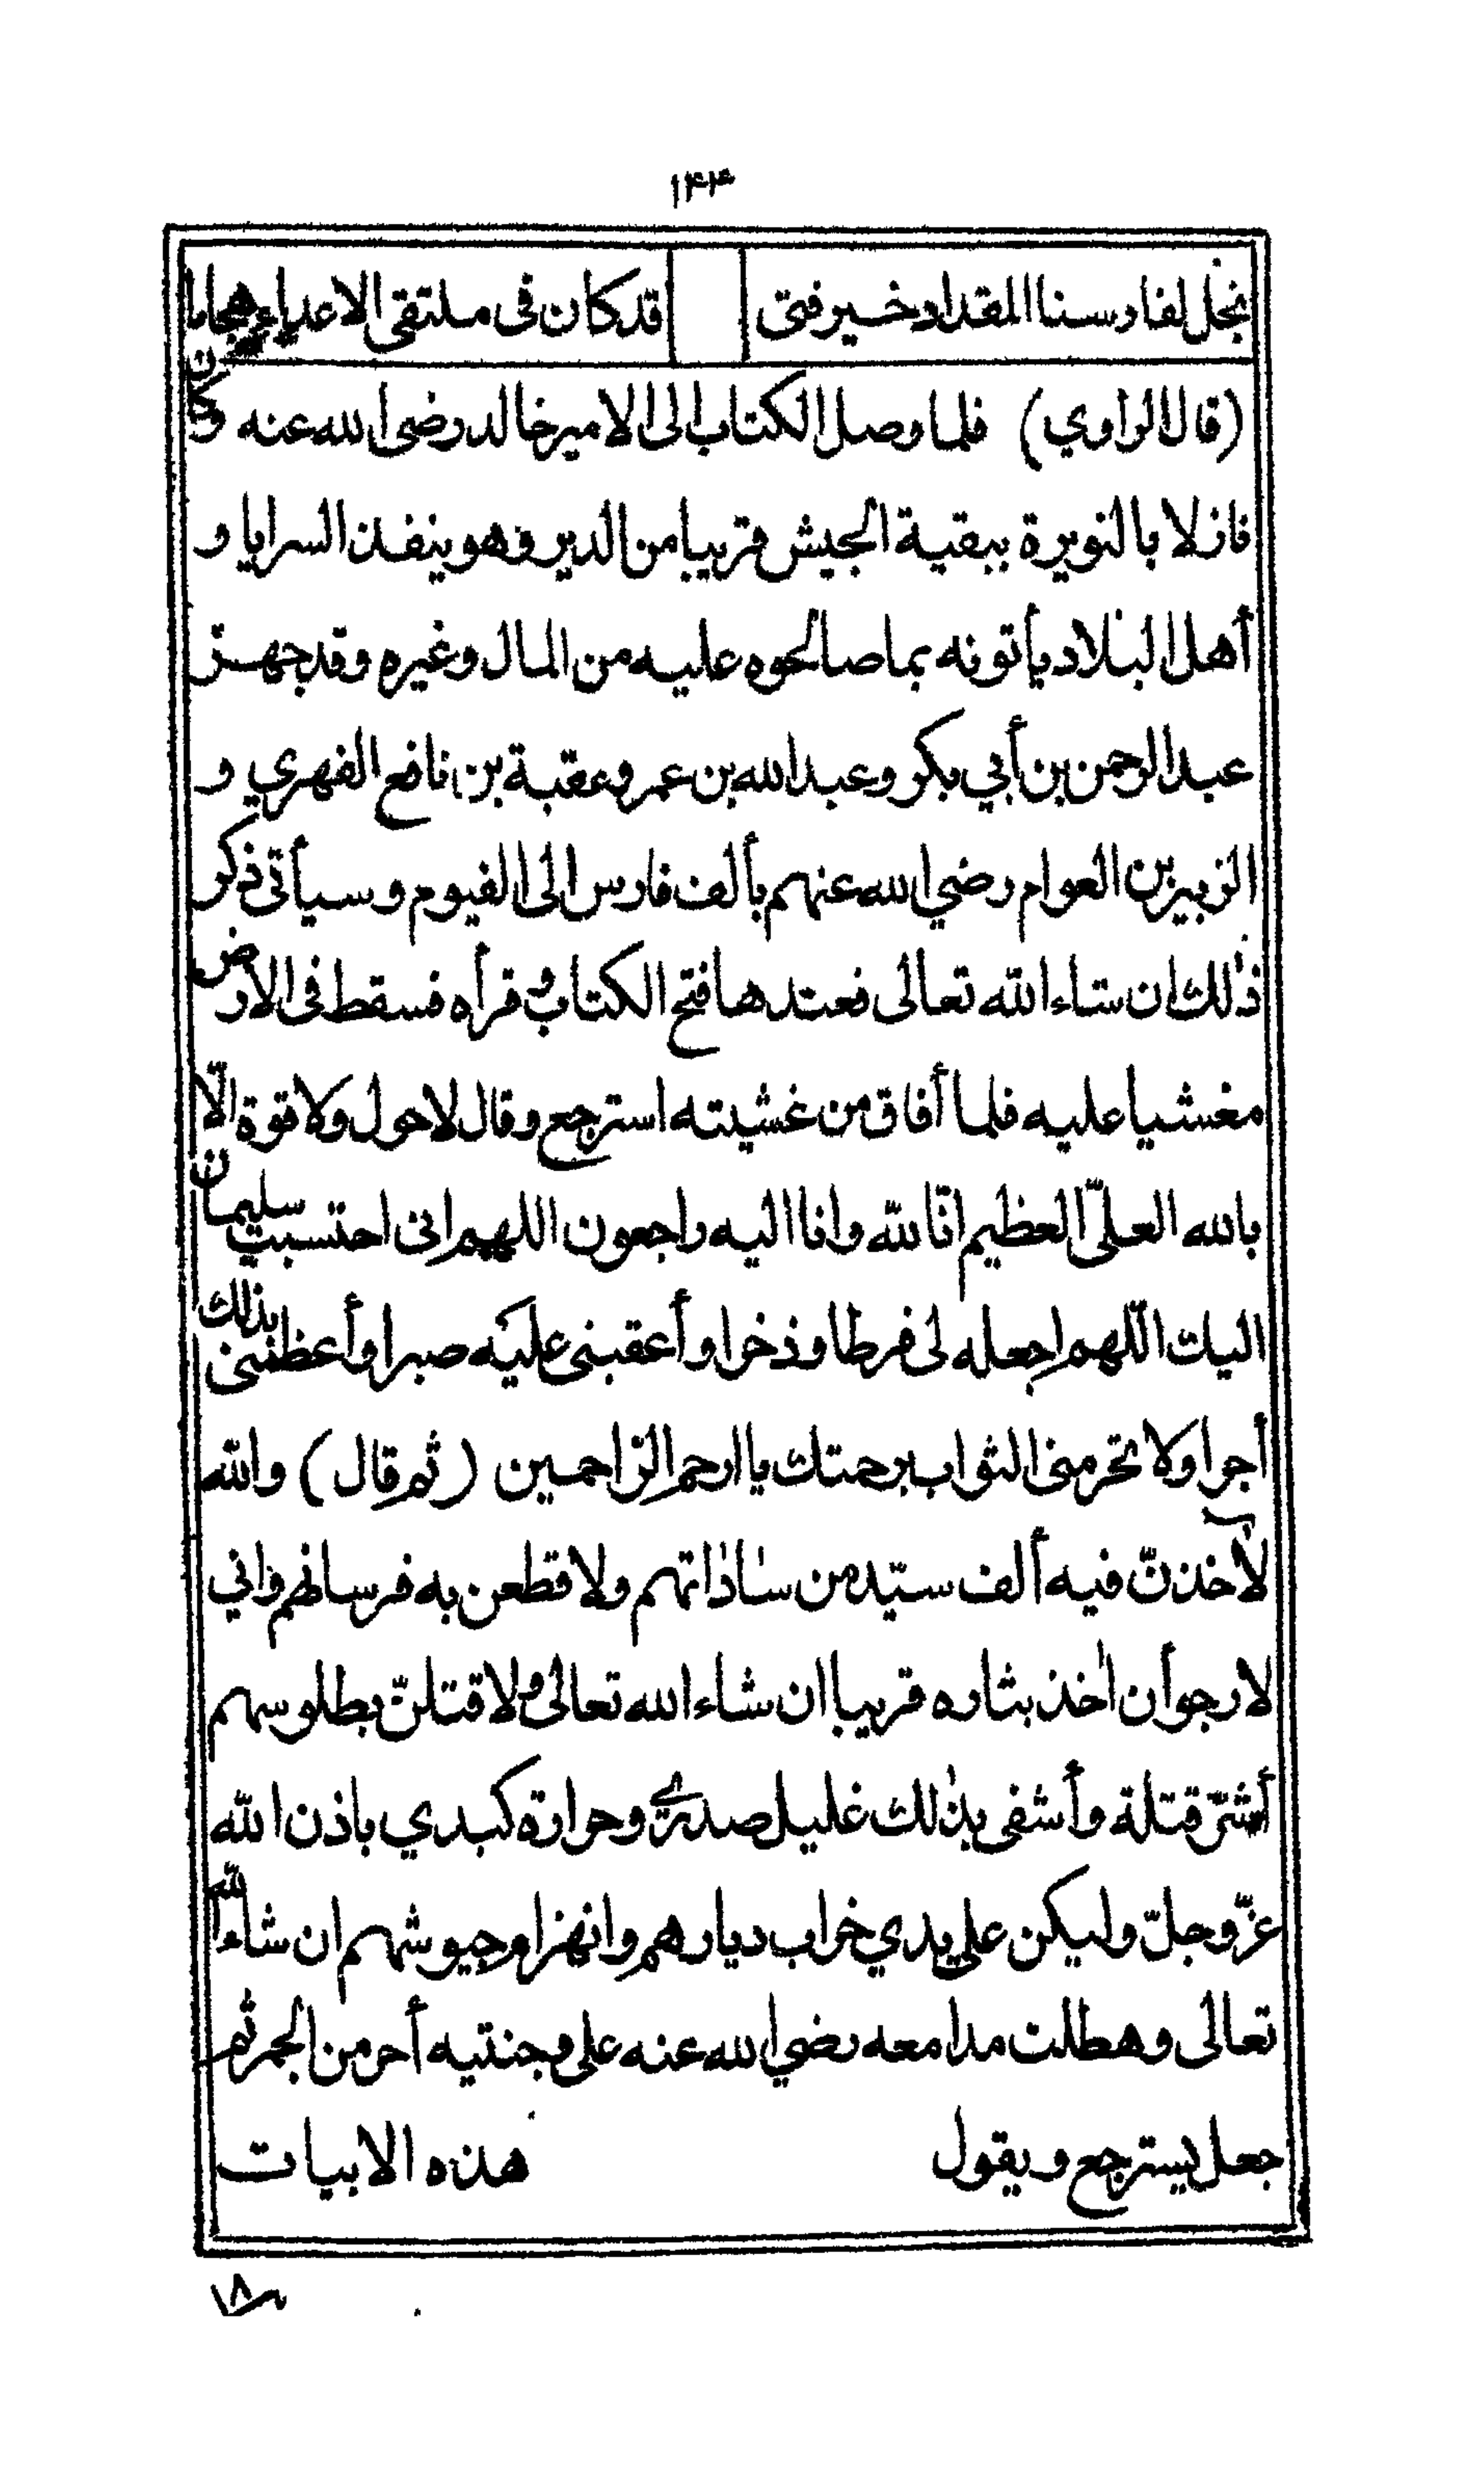 ١٤٣
نجل لفارسنا المقداد خير فتى قد كان فى ملتقى الاعداء هجاما
(قال الراوي) فلما وصل الكتاب الى الامير خالد رضى الله عنه وكان
نازلا بالنويرة ببقية الجيش قريبا من الدير وهو ينفذ السرايا و
أهل البلاد يأتونه بما صالحوه عليه من المال وغيره وقد جهز
عبد الرحمن بن أبي بكر وعبد الله بن عمر وعقبة بن نافع الفهري و
الزبير بن العوام رضي الله عنهم بألف فارس الى الفيوم وسيأتى ذكر
ذلك ان شاء الله تعالى فعندها فتح الكتاب وقرأه فسقط فى الارض
مغشيا عليه فلما أفاق من غشيته استرجع وقال لاحول ولا قوة الّا
بالله العلىّ العظيم انّا لله وانا اليه راجعون اللهم انى احتسبت سليمان
اليك اللّهم اجعله لى فرطا وذخرا وأعقبنى عليه صبرا وأعظمنى بذلك
أجرا ولا تحرمنى الثواب برحمتك يا ارحم الرّاحمين (ثم قال) والله
لآخذنّ فيه ألف سيّد من ساداتهم ولا قطعن به فرسانهم واني
لارجو أن اٰخذ بثاره قريبا ان شاء الله تعالى ولا قتلنّ بطلوسهم
أشرّ قتلة وأشفى بذلك غليل صدري وحرارة كبدي باذن الله
عزّوجلّ وليكن على يدي خراب ديارهم وانهزام جيوشهم ان شاء الله
تعالى وهطلت مدامعه رضي الله عنه على وجنتيه أحر من الجمر ثم
جعل يسترجع ويقول هذه الابيات
١٨